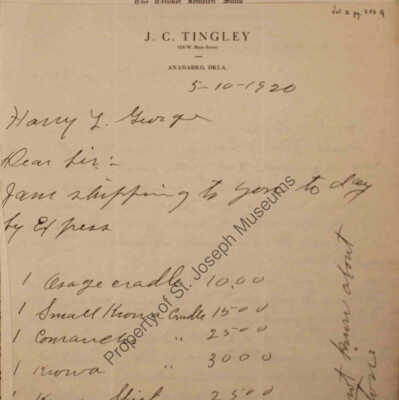 J. C. TINGLEY
ANADARKO, OKLA.
5-10-1920
Harry L. George
Dear Sir:-
I am shipping to you to day
by Express
1 Osage cradle 10.00
1 Small Kiowa Cradle 15 00
1 Comanche " 25 00
1 Kiowa " 30 00
1 25 00
know about
Property of St. Joseph Museums